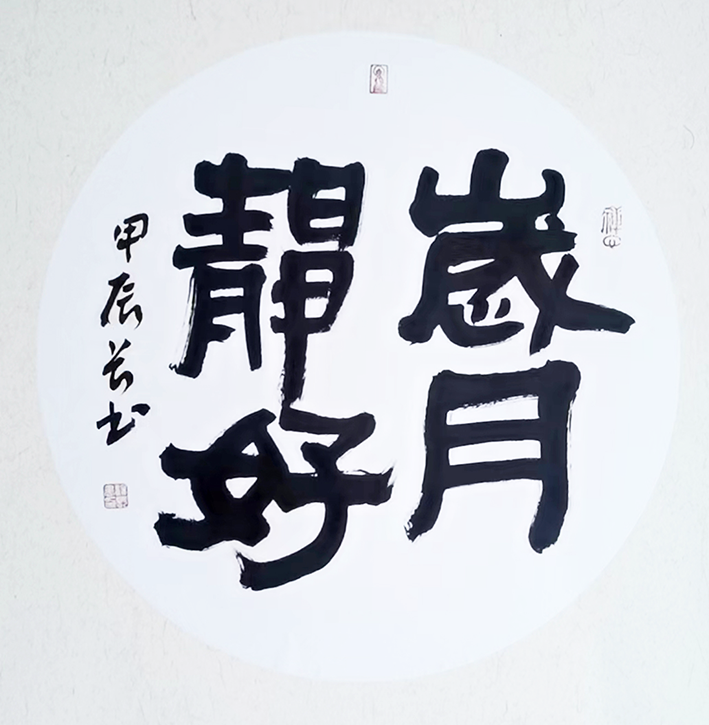 歲月
靜好
甲辰苦书